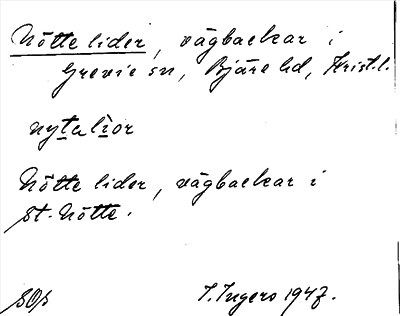 Nötte lider, vägbackar i
Grevie sn, Bjäre hd, Krist.l.
nytalior
Nötte lider, vägbackar i
St. Nötte.
SOs
I. Ingers 1947.